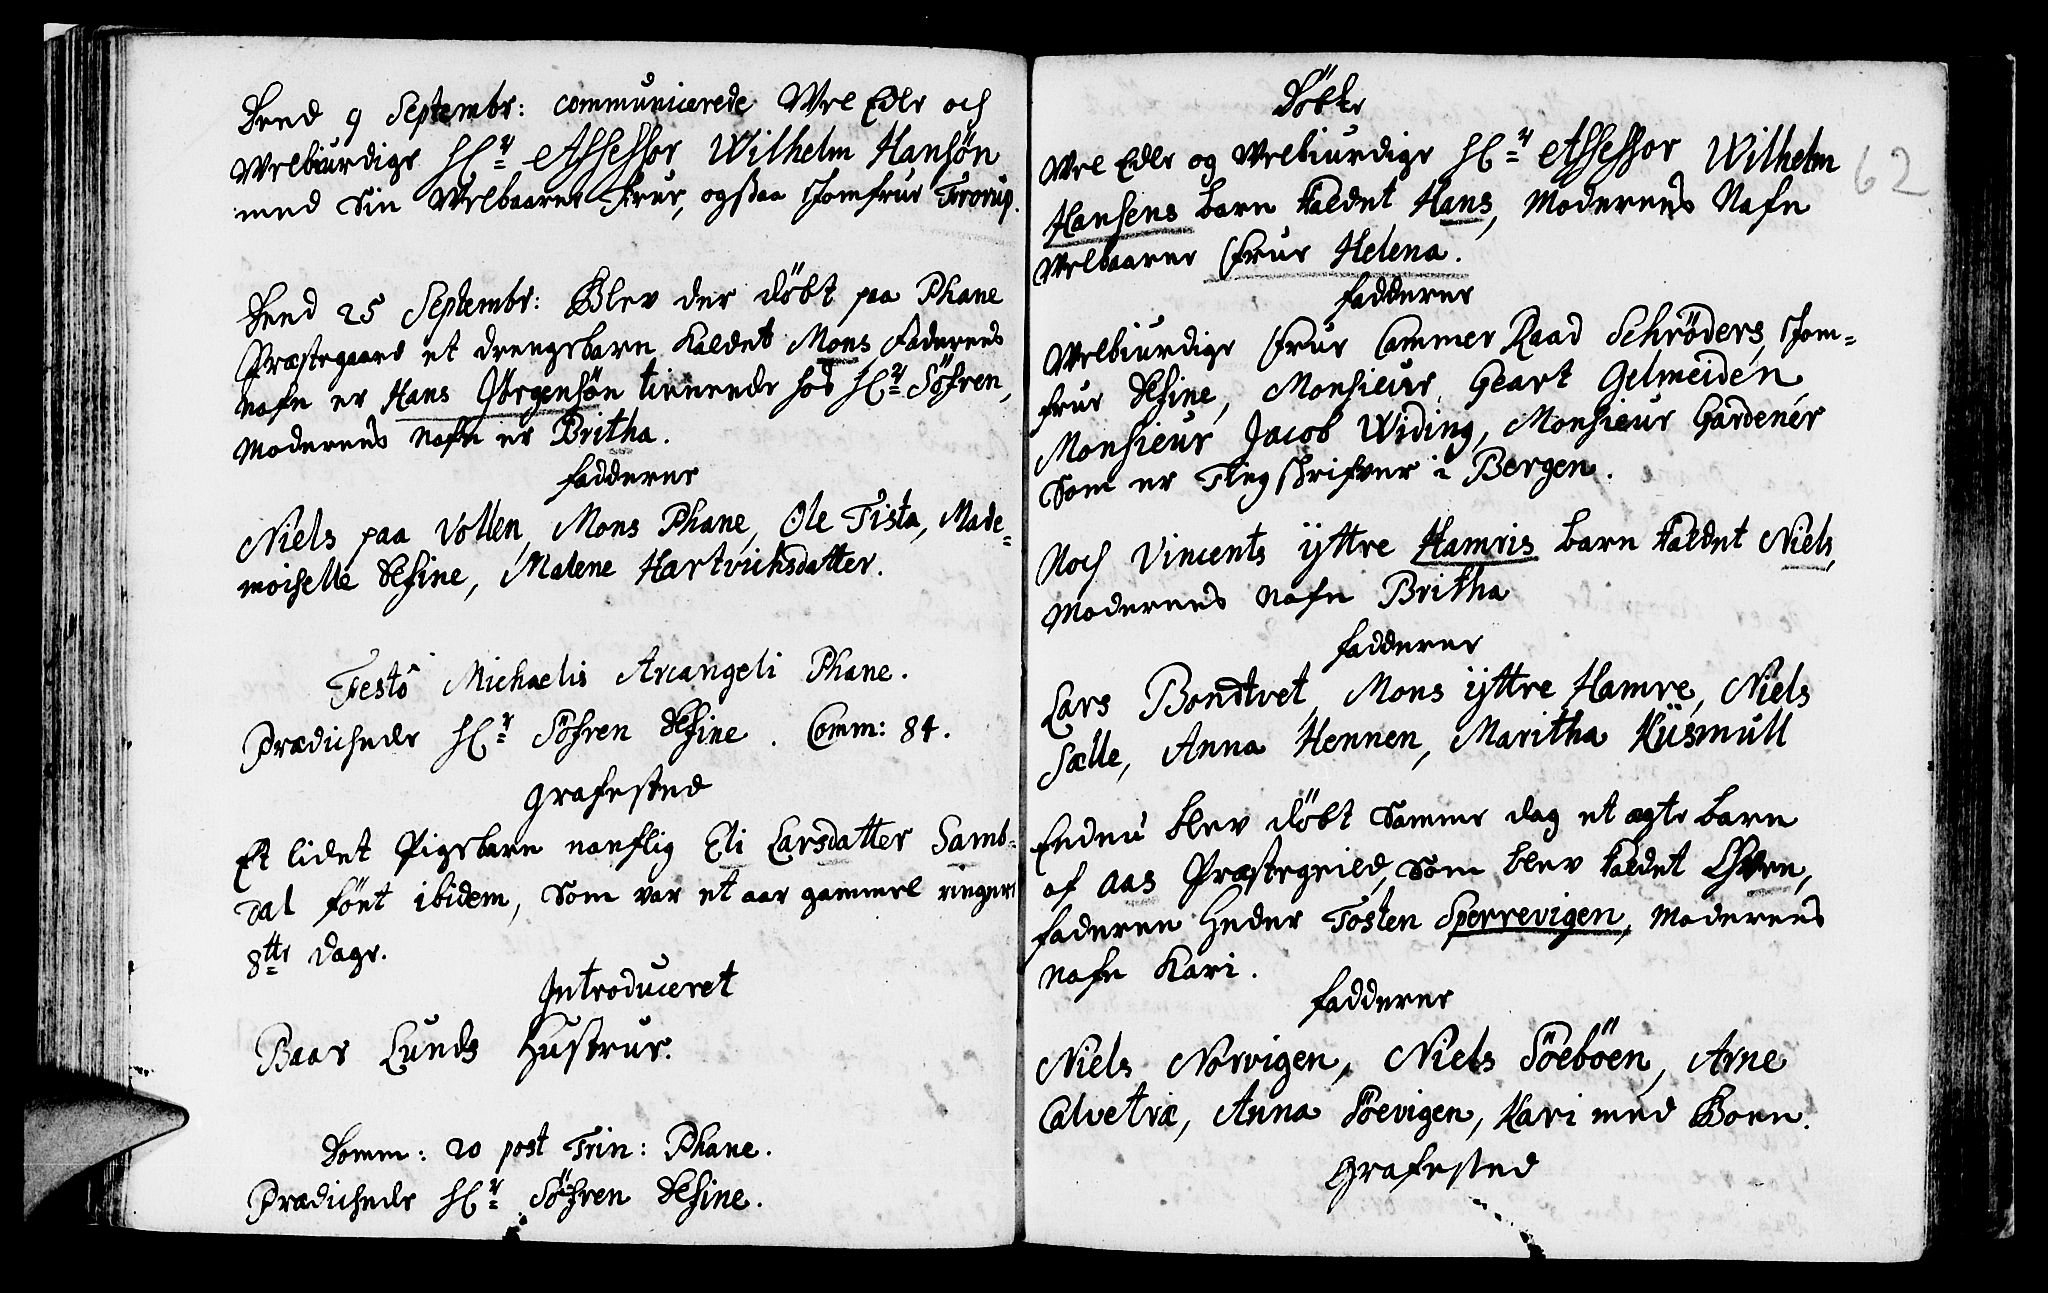 Dend 9 Septembr: communicerede Wel Edle och
Welbiurdige Hr. Assessor Wilhelm Hansøn
med sin Welbaarne Frue, ogsaa Jomfrue Frorup.
Dend 25 Septembr: Blev der döbt paa Phane
Præstegaard et drengebarn kaldet Mons, Faderens
nafn er Hans Jörgensøn tienende hos Hr. Söfren,
Moderens nafn er Britha.
Fadderne
Niels paa Vollen, Mons Phane, Ole Tista, Made=
moiselle, Malene Hartvichsdatter.
Festo Michaelis Arcangeli Phane.
Prædichede Hr. Söfren. Comm: 84.
Grafested
Et lidet Pigebarn nanflig Eli Larsdatter Samb=
dal föet ibidem, som var et aar gammel ringere
8tte dage.
Introduceret
Baar Lunds Hustrue.
Domm: 20 post Trin: Phane.
Prædichede Hr. Söfren.
62
Döbte
Wel Edle og Welbiurdige Hr. Assessor Wilhelm
Hansens barn kaldet Hans, Moderens Nafn
Welbaarne Frue Helena.
Fadderne
Welbiurdige Frue Cammer Raad Schröders, Jom=
frue, Monsieur Geart Gelmeiden
Monsieur Jacob Widing, Monsieur Gardener
som er Tingschrifver i Bergen.
Noch Vincents ÿttre Hamris barn kaldet Niels,
Moderens nafn Britha
Fadderne
Lars Bondtvet, Mons ÿttre Hamre, Niels
Sælle, Anna Hennen, Maritha Küsmull
Endnu blev döbt samme dag et ægte barn
af Aas Præstegield, som blev kaldet,
faderen heder Tosten Sperrevigen, Moderens
nafn Kari.
Fadderne
Niels Norvigen, Niels Söeböen, Arne
Calvetræ, Anna Söevigen, Kari med Boen.
Grafested